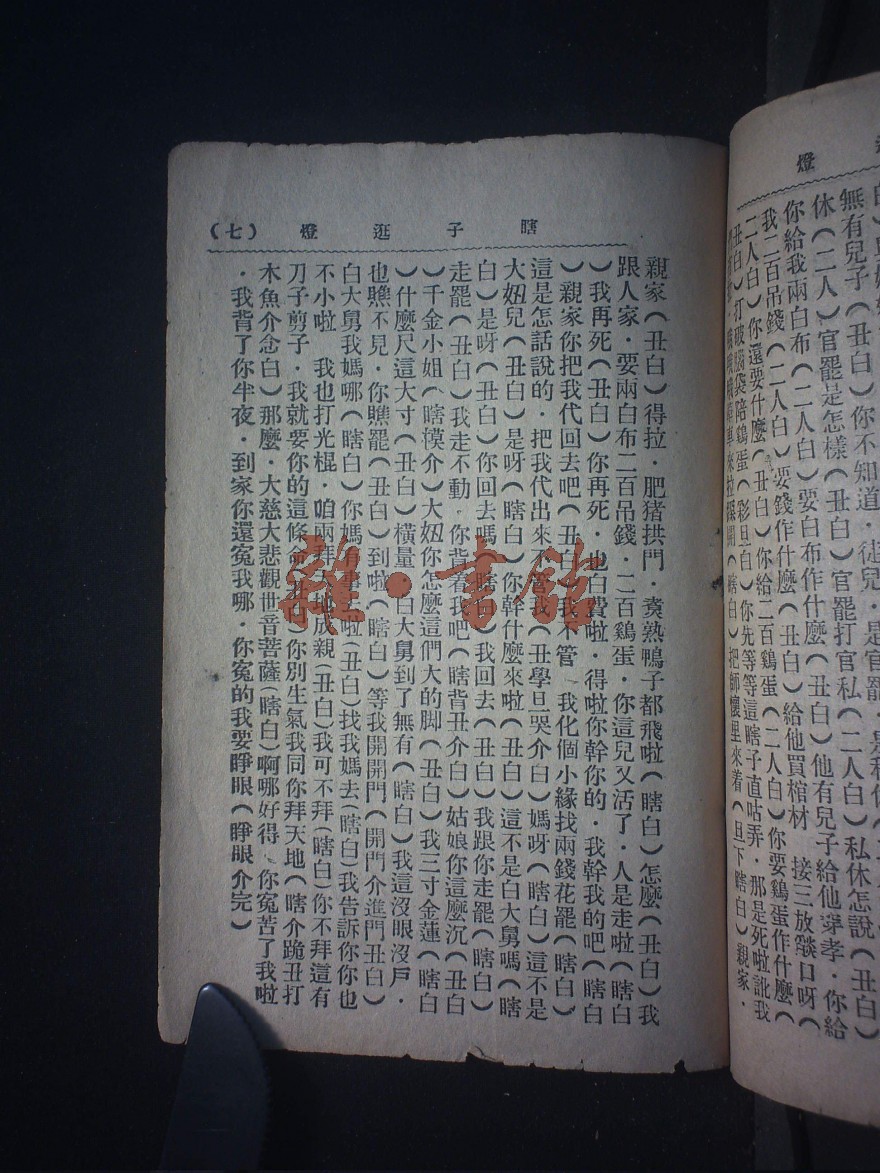 燈
無有兒子(丑白)你不知道．徒兒．是官罷．是私休
休(二人)官罷是怎樣(丑白)官罷打官私(二人白)私休怎說(丑白)
你給我兩白布(二人白)要白布作什麼(丑白)他有兒子給他穿孝．你給
我二百吊錢(二人白)要錢作什麼(丑白)給他買棺材 接三放燄口呀(
二人白)你還要什麼(丑白)你給二百鷄蛋(二人白)你要鷄蛋作什麼(
丑白)打破腦袋陪鷄蛋(彩旦白)你先等等這瞎子直咕弄．那是死啦訛我
來拉躱開(瞎白)把師懷里來着(旦下瞎白)親家．
瞎子逛燈 (七)
親家(丑白)得拉．肥猪拱門．煑熟鴨子都飛啦(瞎白)怎麼(丑白)我
跟人家．要兩白布二百吊錢．二百鷄蛋．你這兒又活了．人是走啦(瞎白
)我再死(丑白)你再死．也白費啦．得啦你幹你的．我幹我的吧(瞎白
)親家你把我代回去吧(丑白)我不管 我化個小緣找兩錢花罷(瞎白)
這是怎話說的．把我代出來不管我(丑學旦哭介白)媽呀(瞎白)這不是
大妞兒(丑白)是呀(瞎白)你幹什麼來啦(丑白)這不是白大舅嗎(瞎
白)是呀(丑白)你回去嗎(瞎白)我回去(丑白)我跟你走罷(瞎白)
走罷(丑白)我走不動 你背着我吧(瞎背丑介白)姑娘你這麼沉(丑白
)千金小姐(瞎摸介)大妞你怎麼這們大的脚(丑白)我三寸金蓮(瞎白
)什麼尺這大寸(丑白)橫量 白大舅到了無有(瞎白)我這沒眼沒戶．
也瞧不見．你瞧罷(丑白)到啦(瞎白)等我開開門(開門介進門丑白)
白大舅我媽哪(瞎白)你媽 啦(丑白)找我媽去(瞎白)我告訴你你也
不小啦 我也打光棍．咱兩拜 地成親(丑白)我可不拜(瞎白)你不拜這有
刀子剪子．我就要你的這條命(丑白)你別生氣我同你拜天地(瞎介跪丑打
木魚介念白)那麼．大慈大悲觀世音菩薩(瞎白)啊哪好得．你冤苦了我啦
．我背了你半夜．到家你還冤我哪．你冤的我要睜眼(睜眼介完)
雜·書館